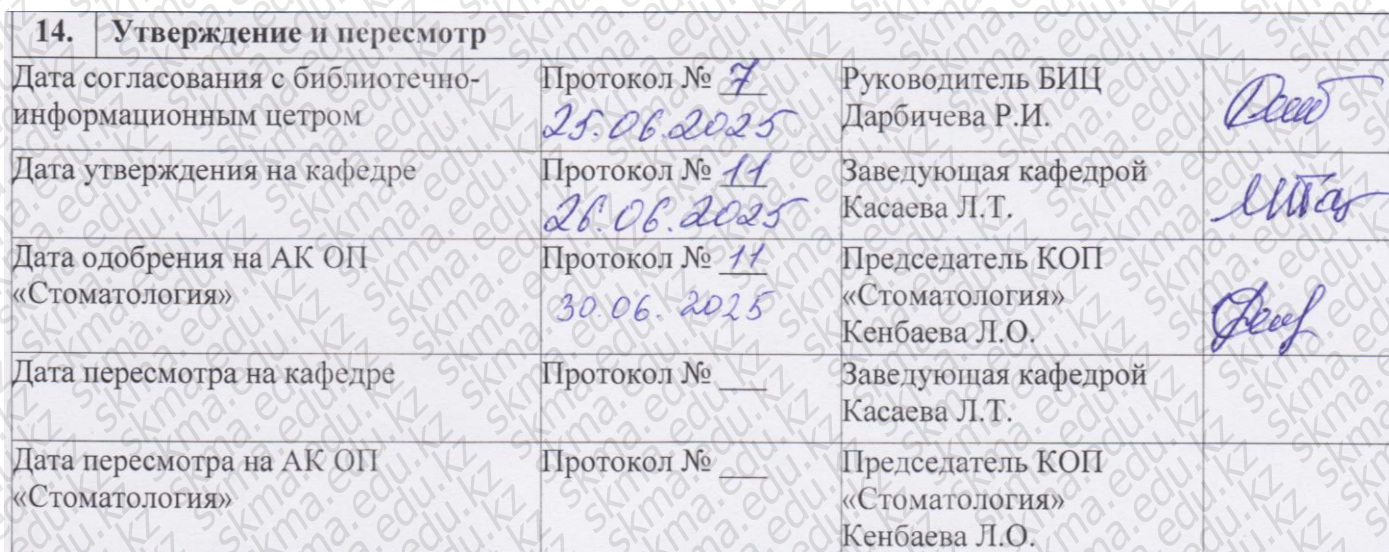 14. Утверждение и пересмотр
Дата согласования с библиотечно-
информационным цетром
Протокол № 7
25.06.2025
Руководитель БИЦ
Дарбичева Р.И.
Дата утверждения на кафедре
Протокол № 11
26.06.2025
Заведующая кафедрой
Касаева Л.Т.
Дата одобрения на АК ОП
«Стоматология»
Протокол № 11
30.06.2025
Председатель КОП
«Стоматология»
Кенбаева Л.О.
Дата пересмотра на кафедре
Протокол № ___
Заведующая кафедрой
Касаева Л.Т.
Дата пересмотра на АК ОП
«Стоматология»
Протокол № ___
Председатель КОП
«Стоматология»
Кенбаева Л.О.
skma.edu.kz